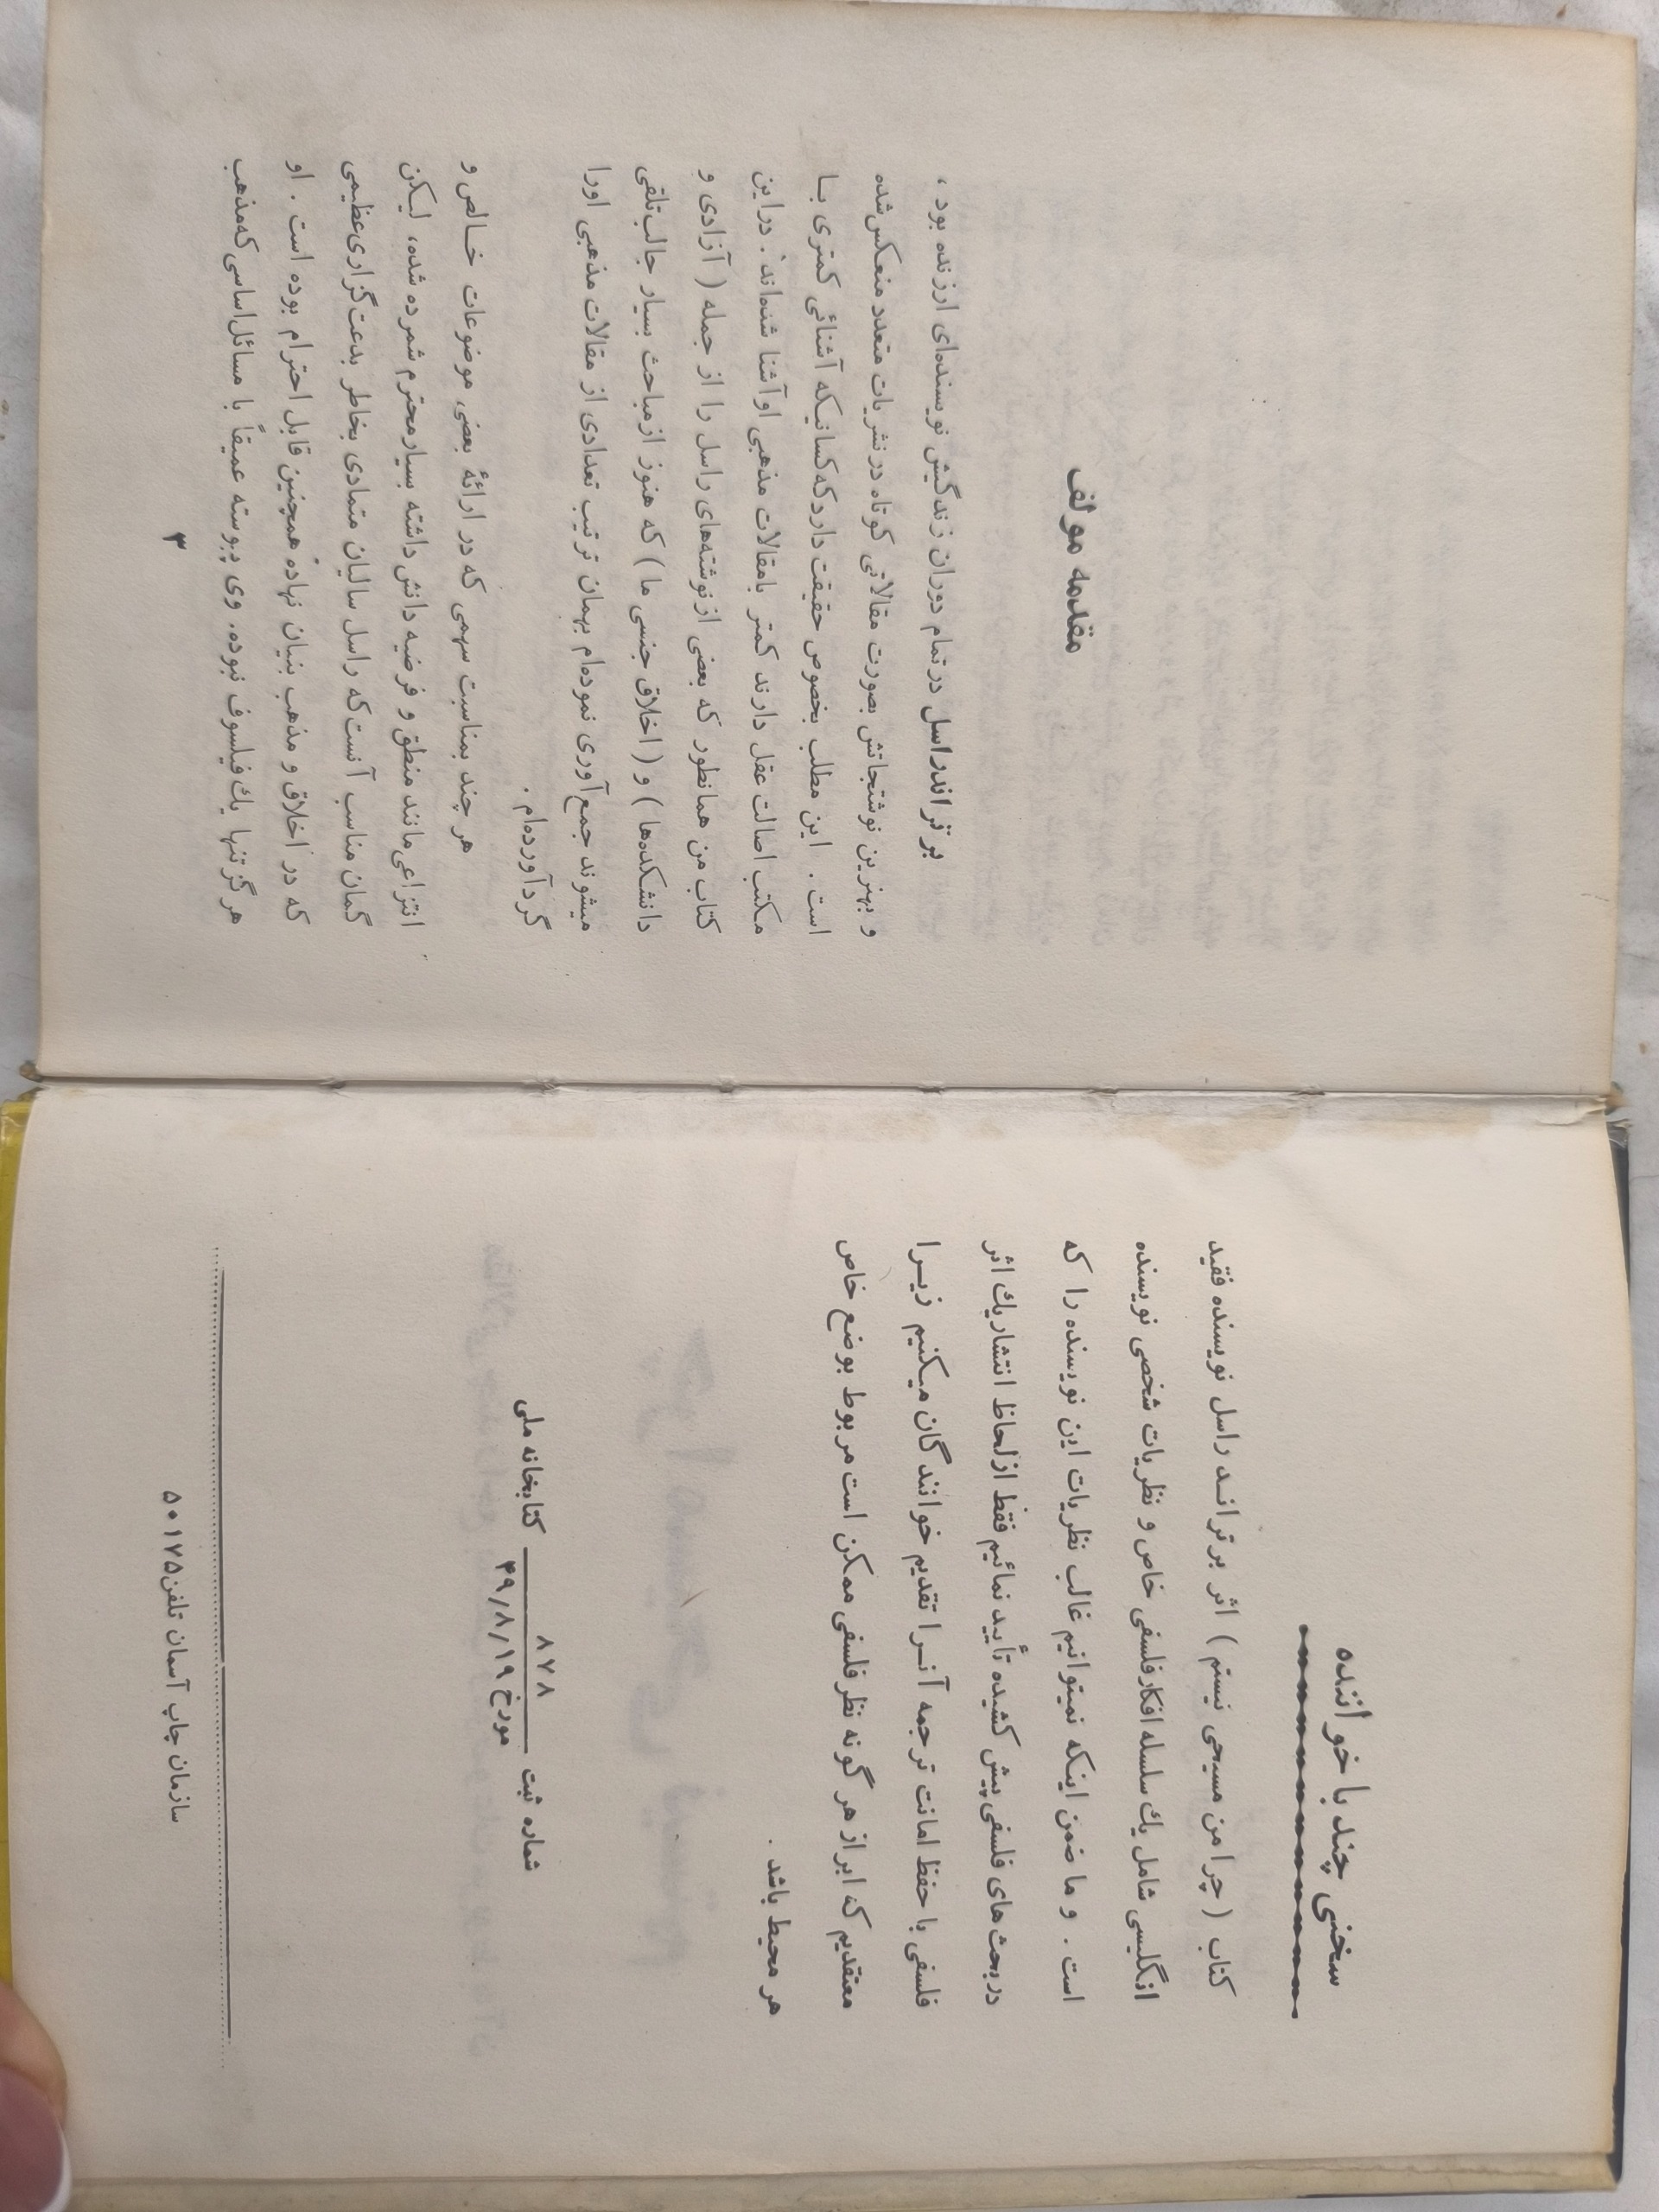 سخنی چند با خواننده
کتاب (چرا من مسیحی نیستم) اثر برترانـد راسل نویسنده فقید
انگلیسی شامل یك سلسله افکار فلسفی خاص و نظریات شخصی نویسنده
است . و ما ضمن اینکه نمیتوانیم غالب نظریات این نویسنده را که
در بحث های فلسفی پیش کشیده تأیید نمائیم فقط از لحاظ انتشار یك اثر
فلسفی با حفظ امانت ترجمه آنـرا تقدیم خوانندگان میـکنیم زیـرا
معتقدیم که ابراز هر گونه نظر فلسفی ممکن است مربوط بوضع خاص
هر محیط باشد .
شماره ثبت ۸۷۸ کتابخانه ملی
مورخ ۴۹/۸/۱۹
سازمان چاپ آسمان تلفن ۵۰۱۷۵
مقدمه مولف
برتراندراسل در تمام دوران زندگیش نویسنده‌ای ارزنده بود ،
و بهترین نوشتجاتش بصورت مقالاتی کوتاه در نشریات متعدد منعکس شده
است . این مطلب بخصوص حقیقت دارد که کسانیکه آشنائی کمتری بـا
مکتب اصالت عقل دارند کمتر بامقالات مذهبی او آشنا شده‌اند . دراین
کتاب من همانطور که بعضی از نوشته‌های راسل را از جمله ( آزادی و
دانشکده‌ها ) و ( اخلاق جنسی ما ) که هنوز از مباحث بسیار جالب تلقی
میشوند جمع آوری نموده‌ام بهمان ترتیب تعدادی از مقالات مذهبی اورا
گردآورده‌ام .
هر چند بمناسبت سهمی که در ارائهٔ بعضی موضوعات خـالص و
انتزاعی مانند منطق و فرضیه دانش داشته بسیار محترم شمرده شده، لیـکن
گمان مناسب آنست که راسل سالیان متمادی بخاطر بدعت گزاری عظیمی
که در اخلاق و مذهب بنیان نهاده همچنین قابل احترام بوده است . او
هرگز تنها یك فیلسوف نبوده. وی پیوسته عمیقاً با مسائل اساسی که مذهب
۳